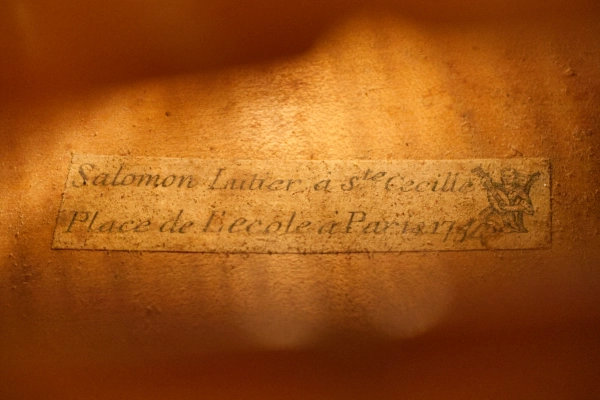 Salomon Lutier, a Ste Cecille
Place de L'ecole a Paris